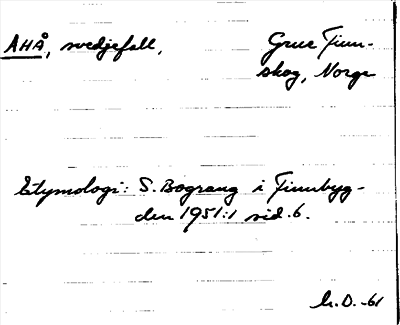 AHÅ, svedjefall, Grue Finn-
skog, Norge
Etymologi: S. Bograng i Finnbyg-
den 1951:1 sid. 6.
D. -61